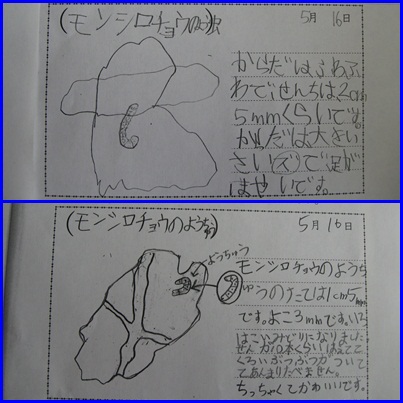 (モンシロチョウのよう虫)
5月 16日
からだは、ふわふ
わで、せんちは、2cm
5mmくらいです。
からだは大きい
さい(ズ)で、足が
はやいです。
(モンシロチョウのようちゅう)
5月 16日
ようちゅう
モンシロチョウのようち
ゅうのたては1cm5mm
です。よこ3mmです。いろ
はこいみどりになりました
せんが10本くらいはえてて
くろいぶつぶつがついて
てあんまりたべません。
ちっちゃくてかわいいです。